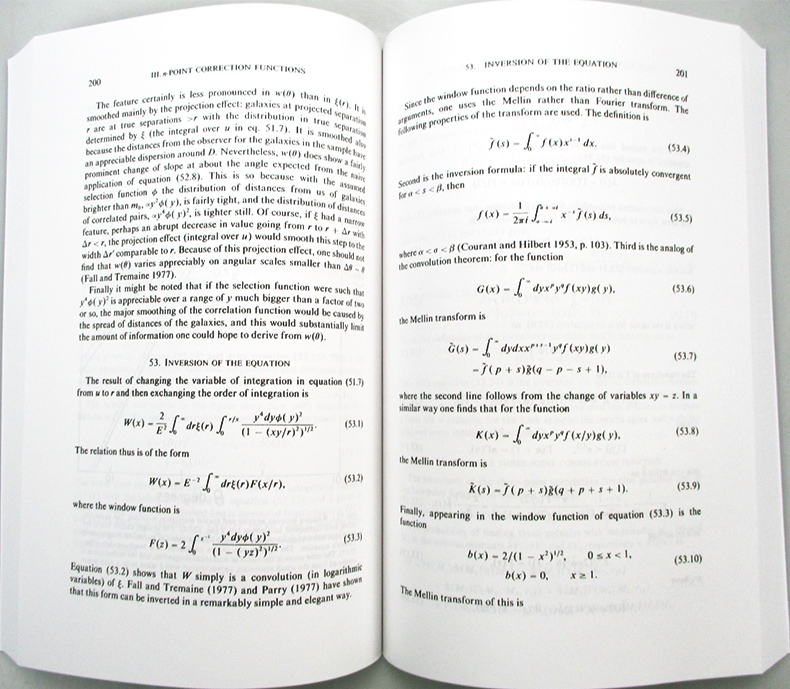 200
III. n-POINT CORRECTION FUNCTIONS
The feature certainly is less pronounced in w(θ) than in ξ(r). It is
smoothed mainly by the projection effect: galaxies at projected separation
r are at true separations >r with the distribution in true separation
determined by ξ (the integral over u in eq. 51.7). It is smoothed also
because the distances from the observer for the galaxies in the sample have
an appreciable dispersion around D. Nevertheless, w(θ) does show a fairly
prominent change of slope at about the angle expected from the naive
application of equation (52.8). This is so because with the assumed
selection function φ the distribution of distances from us of galaxies
brighter than m₀, ∝y²φ(y), is fairly tight, and the distribution of distances
of correlated pairs, ∝y⁴φ(y)², is tighter still. Of course, if ξ had a narrow
feature, perhaps an abrupt decrease in value going from r to r + Δr with
Δr < r, the projection effect (integral over u) would smooth this step to the
width Δr comparable to r. Because of this projection effect, one should not
find that w(θ) varies appreciably on angular scales smaller than Δθ ~ θ
(Fall and Tremaine 1977).
Finally it might be noted that if the selection function were such that
y⁴φ(y)² is appreciable over a range of y much bigger than a factor of two
or so, the major smoothing of the correlation function would be caused by
the spread of distances of the galaxies, and this would substantially limit
the amount of information one could hope to derive from w(θ).
53. INVERSION OF THE EQUATION
The result of changing the variable of integration in equation (51.7)
from u to r and then exchanging the order of integration is
W(x) = 2/E² ∫₀^∞ drξ(r) ∫₀^{r/x} y⁴dyφ(y)² / (1 − (xy/r)²)^{1/2}. (53.1)
The relation thus is of the form
W(x) = E⁻² ∫₀^∞ drξ(r)F(x/r), (53.2)
where the window function is
F(z) = 2 ∫₀^{z⁻¹} y⁴dyφ(y)² / (1 − (yz)²)^{1/2}. (53.3)
Equation (53.2) shows that W simply is a convolution (in logarithmic
variables) of ξ. Fall and Tremaine (1977) and Parry (1977) have shown
that this form can be inverted in a remarkably simple and elegant way.
53. INVERSION OF THE EQUATION
201
Since the window function depends on the ratio rather than difference of
arguments, one uses the Mellin rather than Fourier transform. The
following properties of the transform are used. The definition is
f̃(s) = ∫₀^∞ f(x)x^{s−1} dx. (53.4)
Second is the inversion formula: if the integral f̃ is absolutely convergent
for α < s < β, then
f(x) = 1/2πi ∫_{σ−i∞}^{σ+i∞} x^{−s} f̃(s) ds, (53.5)
where α < σ < β (Courant and Hilbert 1953, p. 103). Third is the analog of
the convolution theorem: for the function
G(x) = ∫₀^∞ dyx^p y^q f(xy)g(y), (53.6)
the Mellin transform is
G̃(s) = ∫₀^∞ dydxx^{p+s−1}y^q f(xy)g(y)
= f̃(p + s)g̃(q − p − s + 1), (53.7)
where the second line follows from the change of variables xy = z. In a
similar way one finds that for the function
K(x) = ∫₀^∞ dyx^p y^q f(x/y)g(y), (53.8)
the Mellin transform is
K̃(s) = f̃(p + s)g̃(q + p + s + 1). (53.9)
Finally, appearing in the window function of equation (53.3) is the
function
b(x) = 2/(1 − x²)^{1/2}, 0 ≤ x < 1,
b(x) = 0, x ≥ 1. (53.10)
The Mellin transform of this is